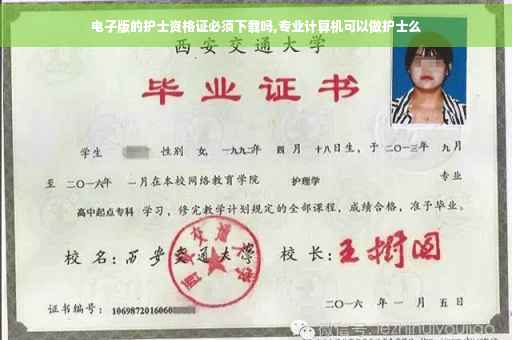 电子版的护士资格证必须下载吗,专业计算机可以做护士么
西安交通大学
毕业证书
学生 性别 女, 一九九二年 四月 十八日生, 于 二〇一三年 九月
至 二〇一六年 一月在本校网络教育学院 护理学 专业
高中起点专科 学习, 修完教学计划规定的全部课程, 成绩合格, 准予毕业。
校名: 西安交通大学 校长: 王树国
西安交通大学
证书编号: 1069872016060
二〇一六年一月五日
微信号: jezhihuiyoujiao